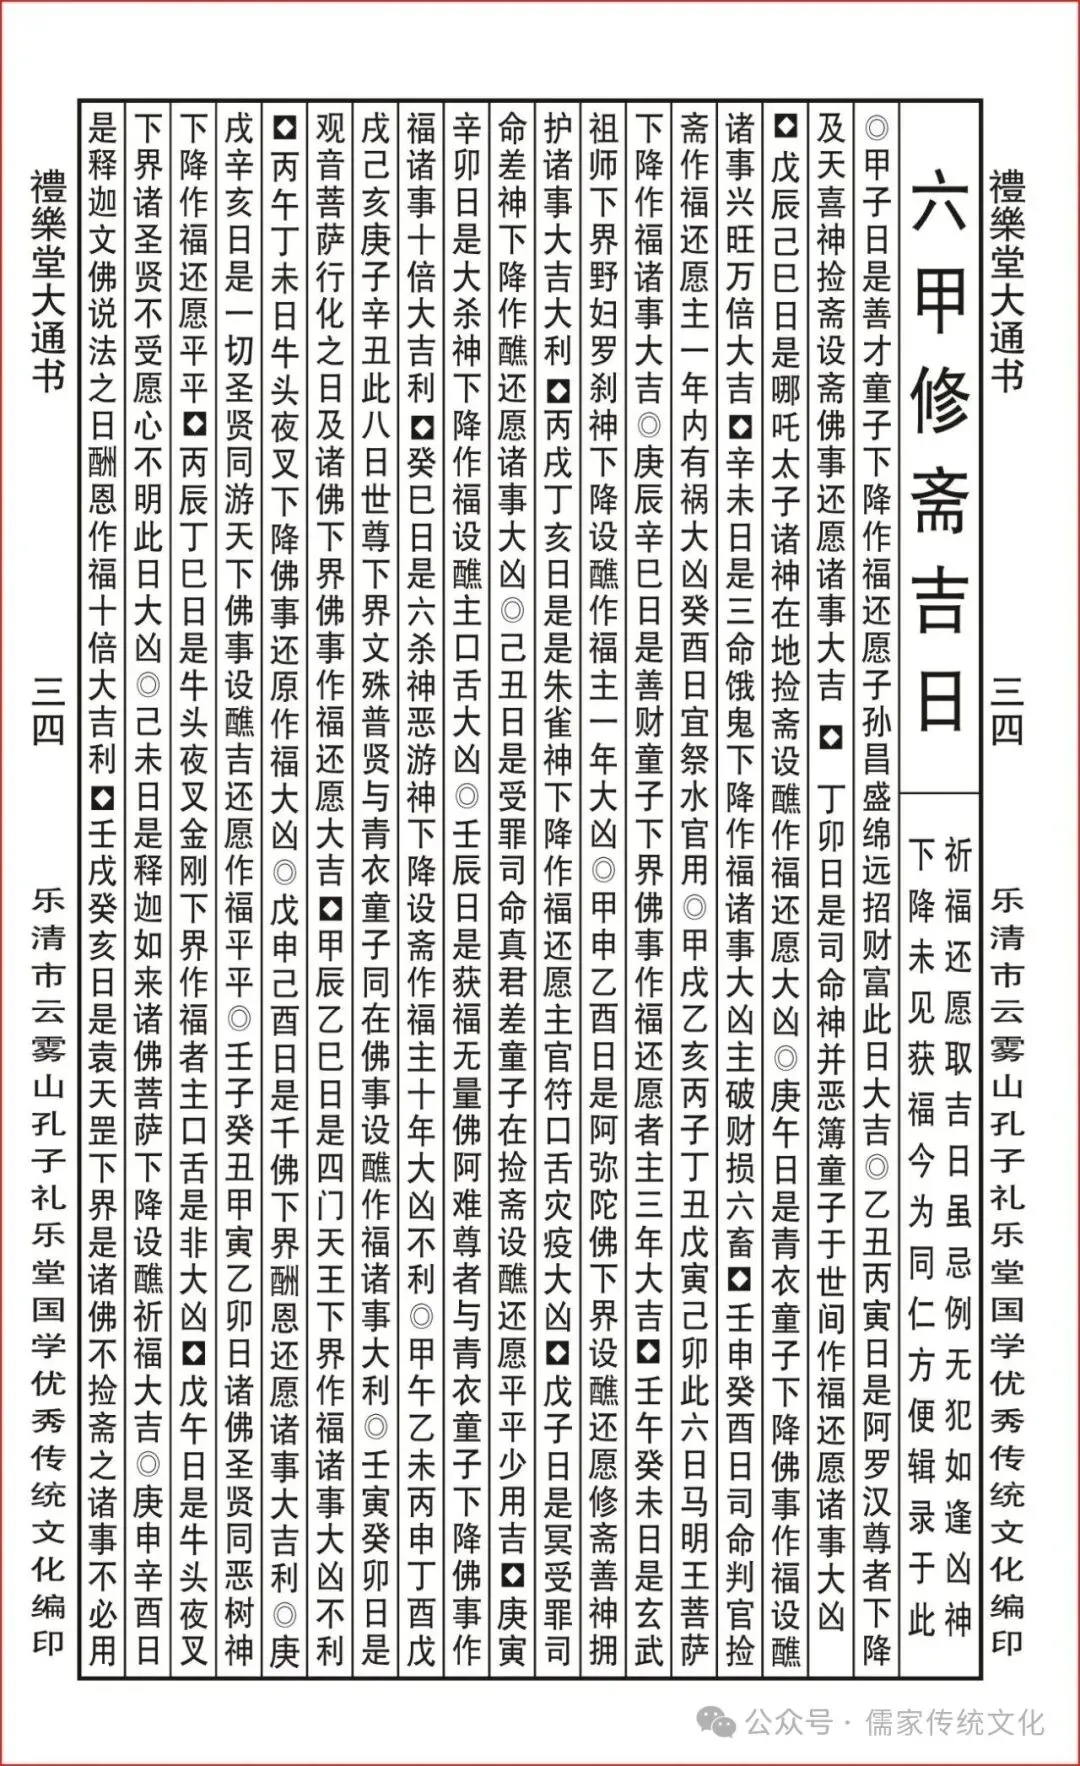 禮樂堂大通书
三四
乐清市云雾山孔子礼乐堂国学优秀传统文化编印
六甲修斋吉日
祈福还愿取吉日虽忌例无犯如逢凶神
下降未见获福今为同仁方便辑录于此
◎甲子日是善才童子下降作福还愿子孙昌盛绵远招财富此日大吉◎乙丑丙寅日是阿罗汉尊者下降
及天喜神捡斋设斋佛事还愿诸事大吉 ◆ 丁卯日是司命神并恶簿童子于世间作福还愿诸事大凶
◆戊辰己巳日是哪吒太子诸神在地捡斋设醮作福还愿大凶◎庚午日是青衣童子下降佛事作福设醮
诸事兴旺万倍大吉◆辛未日是三命饿鬼下降作福诸事大凶主破财损六畜◆壬申癸酉日司命判官捡
斋作福还愿主一年内有祸大凶癸酉日宜祭水官用◎甲戌乙亥丙子丁丑戊寅己卯此六日马明王菩萨
下降作福诸事大吉◎庚辰辛巳日是善财童子下界佛事作福还愿者主三年大吉◆壬午癸未日是玄武
祖师下界野妇罗刹神下降设醮作福主一年大凶◎甲申乙酉日是阿弥陀佛下界设醮还愿修斋善神拥
护诸事大吉大利◆丙戌丁亥日是是朱雀神下降作福还愿主官符口舌灾疫大凶◆戊子日是冥受罪司
命差神下降作醮还愿诸事大凶◎己丑日是受罪司命真君差童子在捡斋设醮还愿平平少用吉◆庚寅
辛卯日是大杀神下降作福设醮主口舌大凶◎壬辰日是获福无量佛阿难尊者与青衣童子下降佛事作
福诸事十倍大吉利◆癸巳日是六杀神恶游神下降设斋作福主十年大凶不利◎甲午乙未丙申丁酉戊
戌己亥庚子辛丑此八日世尊下界文殊普贤与青衣童子同在佛事设醮作福诸事大利◎壬寅癸卯日是
观音菩萨行化之日及诸佛下界佛事作福还愿大吉◆甲辰乙巳日是四门天王下界作福诸事大凶不利
◆丙午丁未日牛头夜叉下降佛事还原作福大凶◎戊申己酉日是千佛下界酬恩还愿诸事大吉利◎庚
戌辛亥日是一切圣贤同游天下佛事设醮吉还愿作福平平◎壬子癸丑甲寅乙卯日诸佛圣贤同恶树神
下降作福还愿平平◆丙辰丁巳日是牛头夜叉金刚下界作福者主口舌是非大凶◆戊午日是牛头夜叉
下界诸圣贤不受愿心不明此日大凶◎己未日是释迦如来诸佛菩萨下降设醮祈福大吉◎庚申辛酉日
是释迦文佛说法之日酬恩作福十倍大吉利◆壬戌癸亥日是袁天罡下界是诸佛不捡斋之诸事不必用
禮樂堂大通书
三四
乐清市云雾山孔子礼乐堂国学优秀传统文化编印
公众号·儒家传统文化